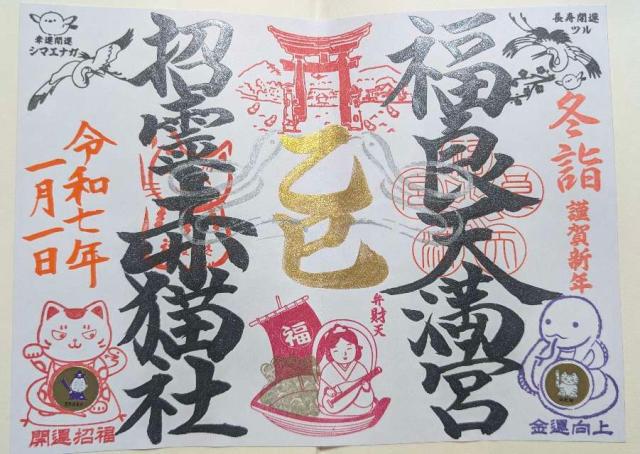 長寿開運
ツル
冬詣
謹賀新年
福良天満宮
弁財天
福
乙巳
金運向上
幸運開運
シマエナガ
招霊赤猫社
令和七年
一月一日
開運招福